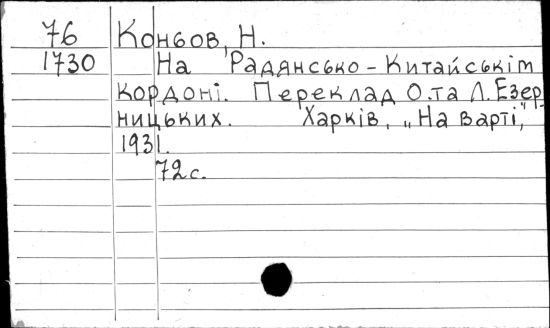 76 Конбов, Н.
1730 На Радянсько-Китайськім
кордоні. Переклад О.та Л.Езер-
ницьких. Харків, „На варті,"
1931.
72с.